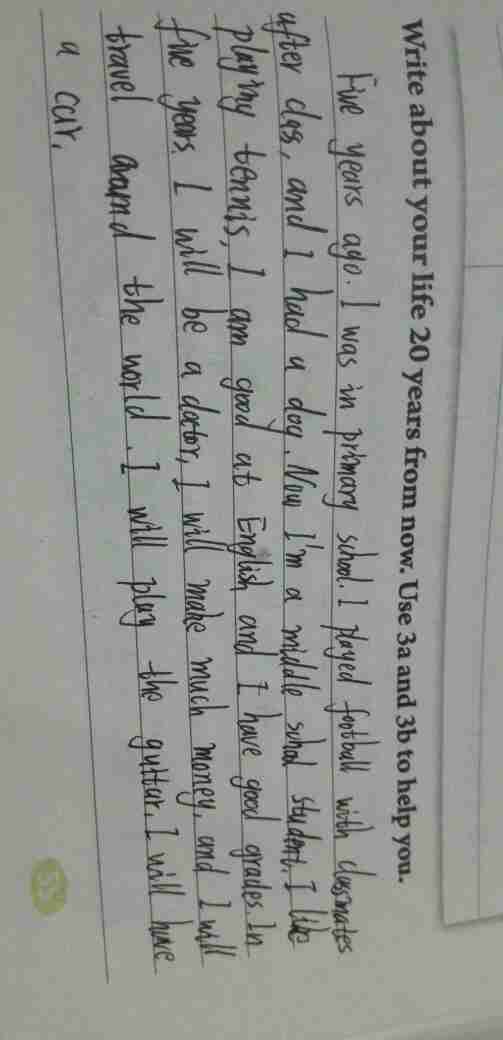 Write about your life 20 years from now. Use 3a and 3b to help you.
Five years ago. I was in primary school. I played football with classmates
after class, and I had a dog. Now I'm a middle school student. I like
playing tennis, I am good at English and I have good grades. In
five years. I will be a doctor, I will make much money, and I will
travel around the world. I will play the guitar. I will have
a car.